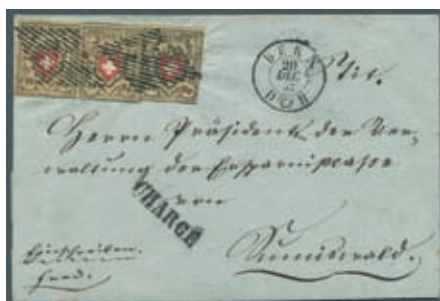 BERN
20
DEC
Tit.
Herrn Präsident der Ver-
waltung der Ersparnißcasse
von
CHARGÉ
Sumiswald.
Einschreiben.